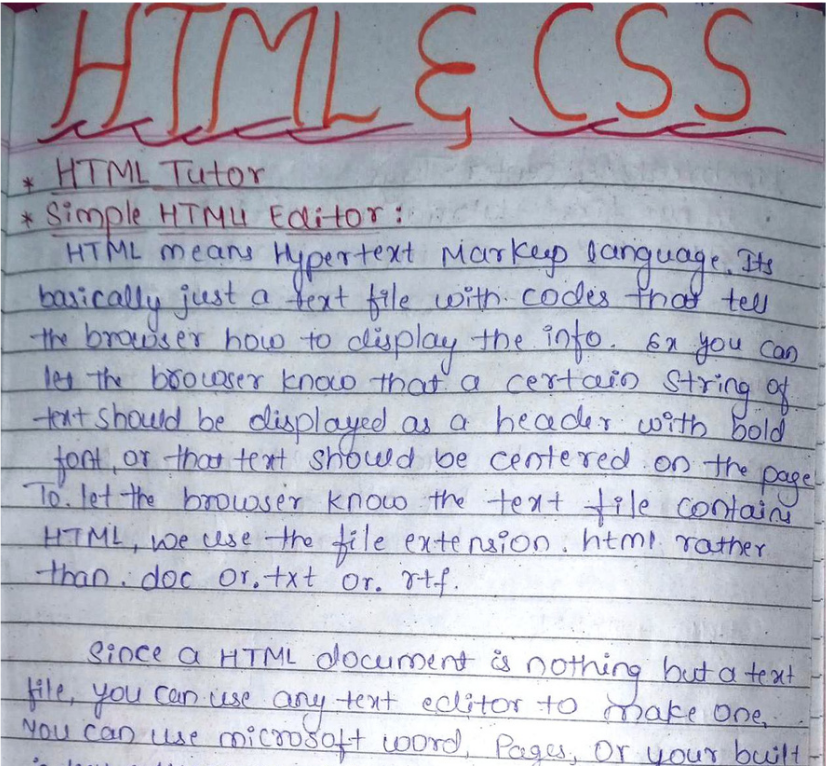 HTML & CSS
* HTML Tutor
* Simple HTML Editor:
HTML means Hypertext Markup language. Its
basically just a text file with codes that tell
the browser how to display the info. Ex you can
let the browser know that a certain string of
text should be displayed as a header with bold
font, or that text should be centered on the page
To. let the browser know the text file contains
HTML, we use the file extension .html rather
than .doc or .txt or. rtf.
Since a HTML document is nothing but a text
file, you can use any text editor to make one,
You can use microsoft word, Pages, Or your built